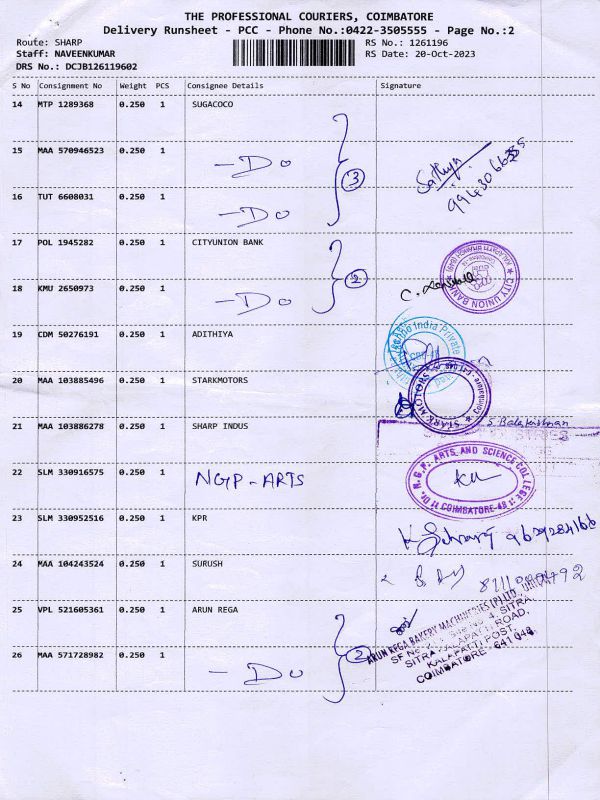 THE PROFESSIONAL COURIERS, COIMBATORE
Delivery Runsheet - PCC - Phone No.:0422-3505555 - Page No.:2
Route: SHARP RS No.: 1261196
Staff: NAVEENKUMAR RS Date: 20-Oct-2023
DRS No.: DCJB126119602
S No Consignment No Weight PCS Consignee Details Signature
14 MTP 1289368 0.250 1 SUGACOCO
15 MAA 570946523 0.250 1 - Do 3 Sathya
16 TUT 6608031 0.250 1 - Do
17 POL 1945282 0.250 1 CITYUNION BANK
CITY UNION BANK
18 KMU 2650973 0.250 1 - Do 2 C.
19 CDM 50276191 0.250 1 ADITHIYA
India Private
20 MAA 103885496 0.250 1 STARKMOTORS
STARK MOTORS
21 MAA 103886278 0.250 1 SHARP INDUS S. Balakrishnan
22 SLM 330916575 0.250 1 NGP - ARTS
Dr. N.G.P. ARTS AND SCIENCE COLLEGE
COIMBATORE-48
23 SLM 330952516 0.250 1 KPR
24 MAA 104243524 0.250 1 SURUSH
25 VPL 521605361 0.250 1 ARUN REGA
ARUN REGA BAKERY MACHINERIES (P) LTD.,
SITRA
KALAPATTI ROAD,
KALAPATTI POST,
COIMBATORE - 641 048.
26 MAA 571728982 0.250 1 - Do 2